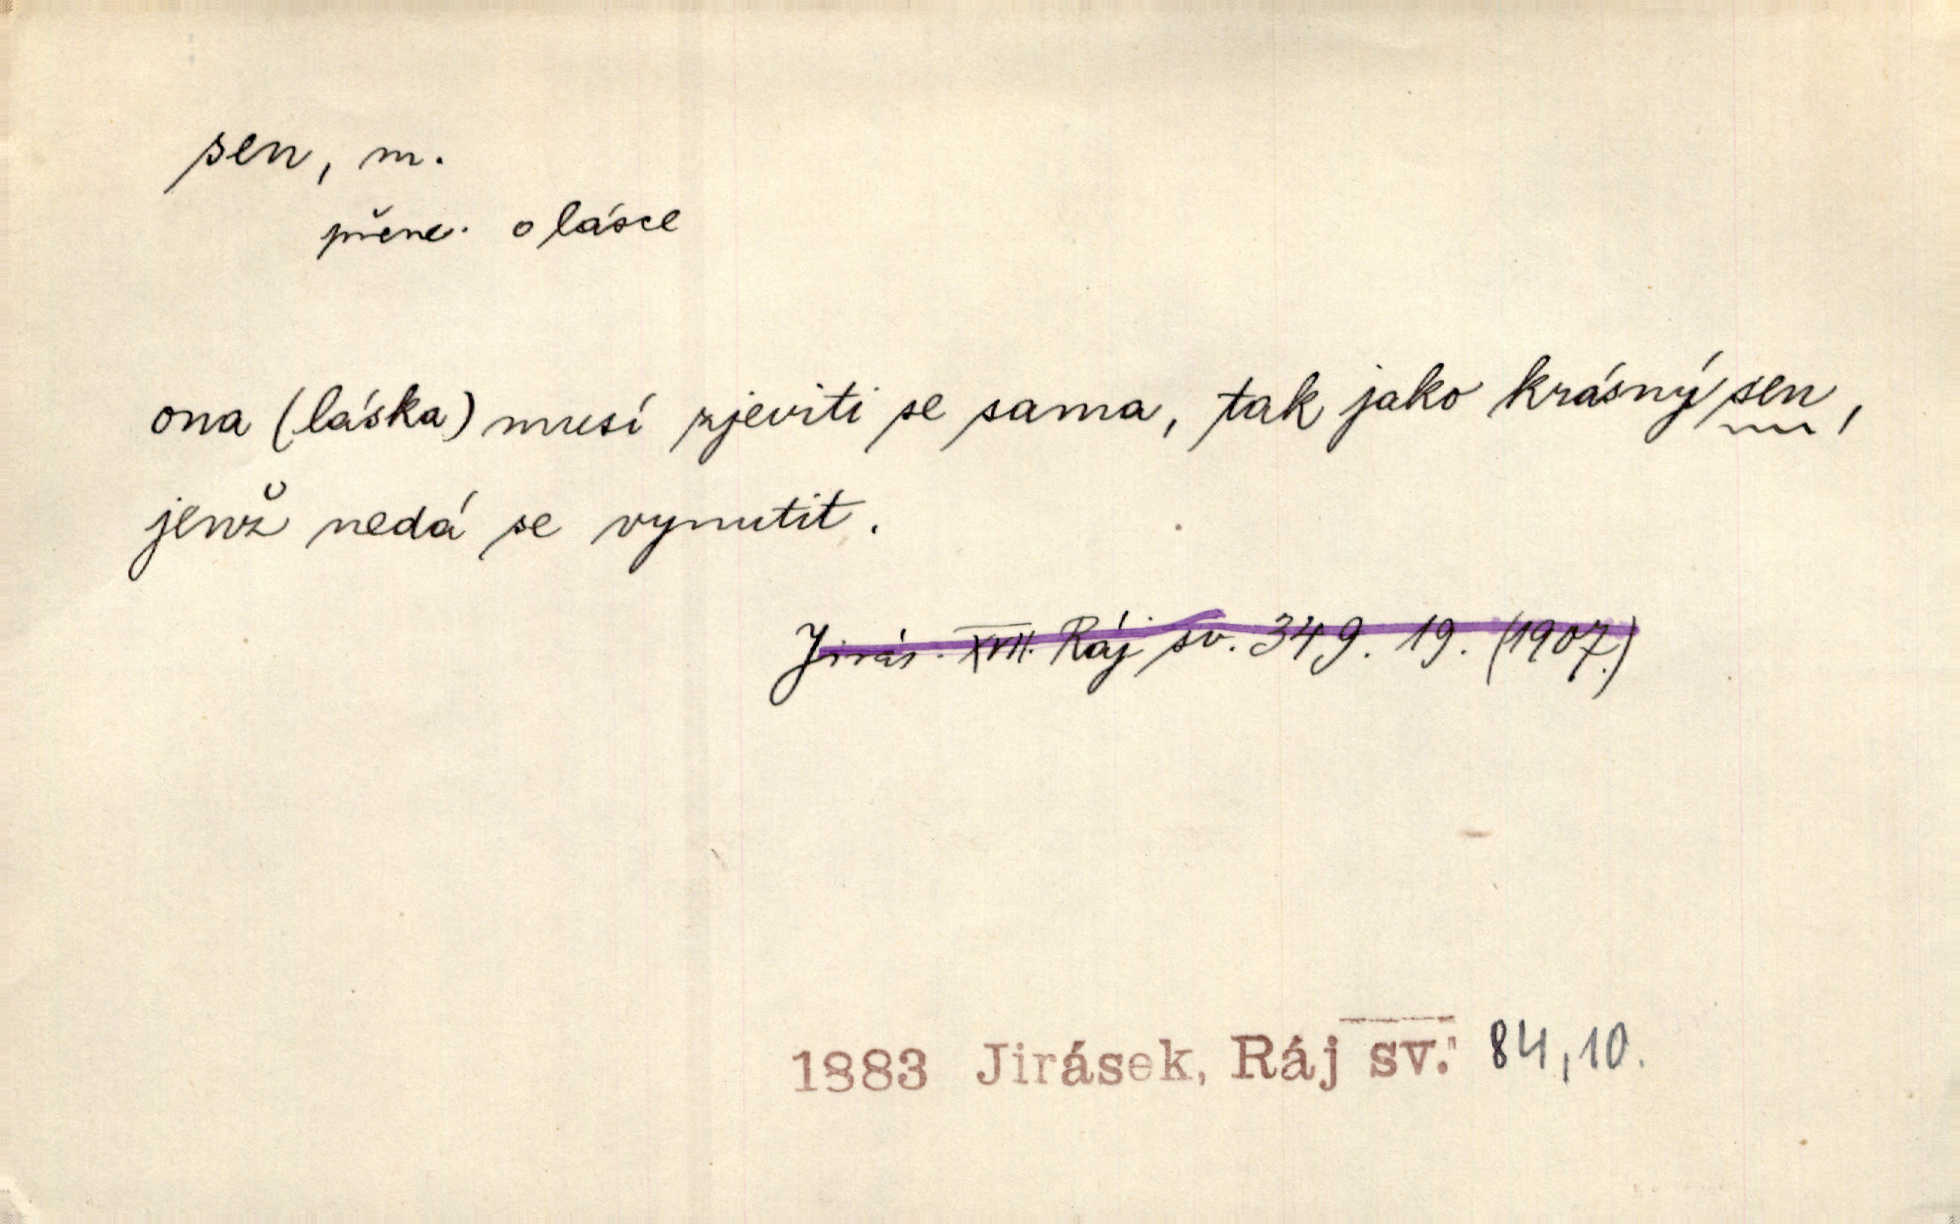 sen, m.
přene. o lásce
ona (láska) musí zjeviti se sama, tak jako krásný sen,
jenž nedá se vynutit.
Jirás. XVII. Ráj sv. 349. 19. (1907.)
1883 Jirásek, Ráj sv. 84,10.